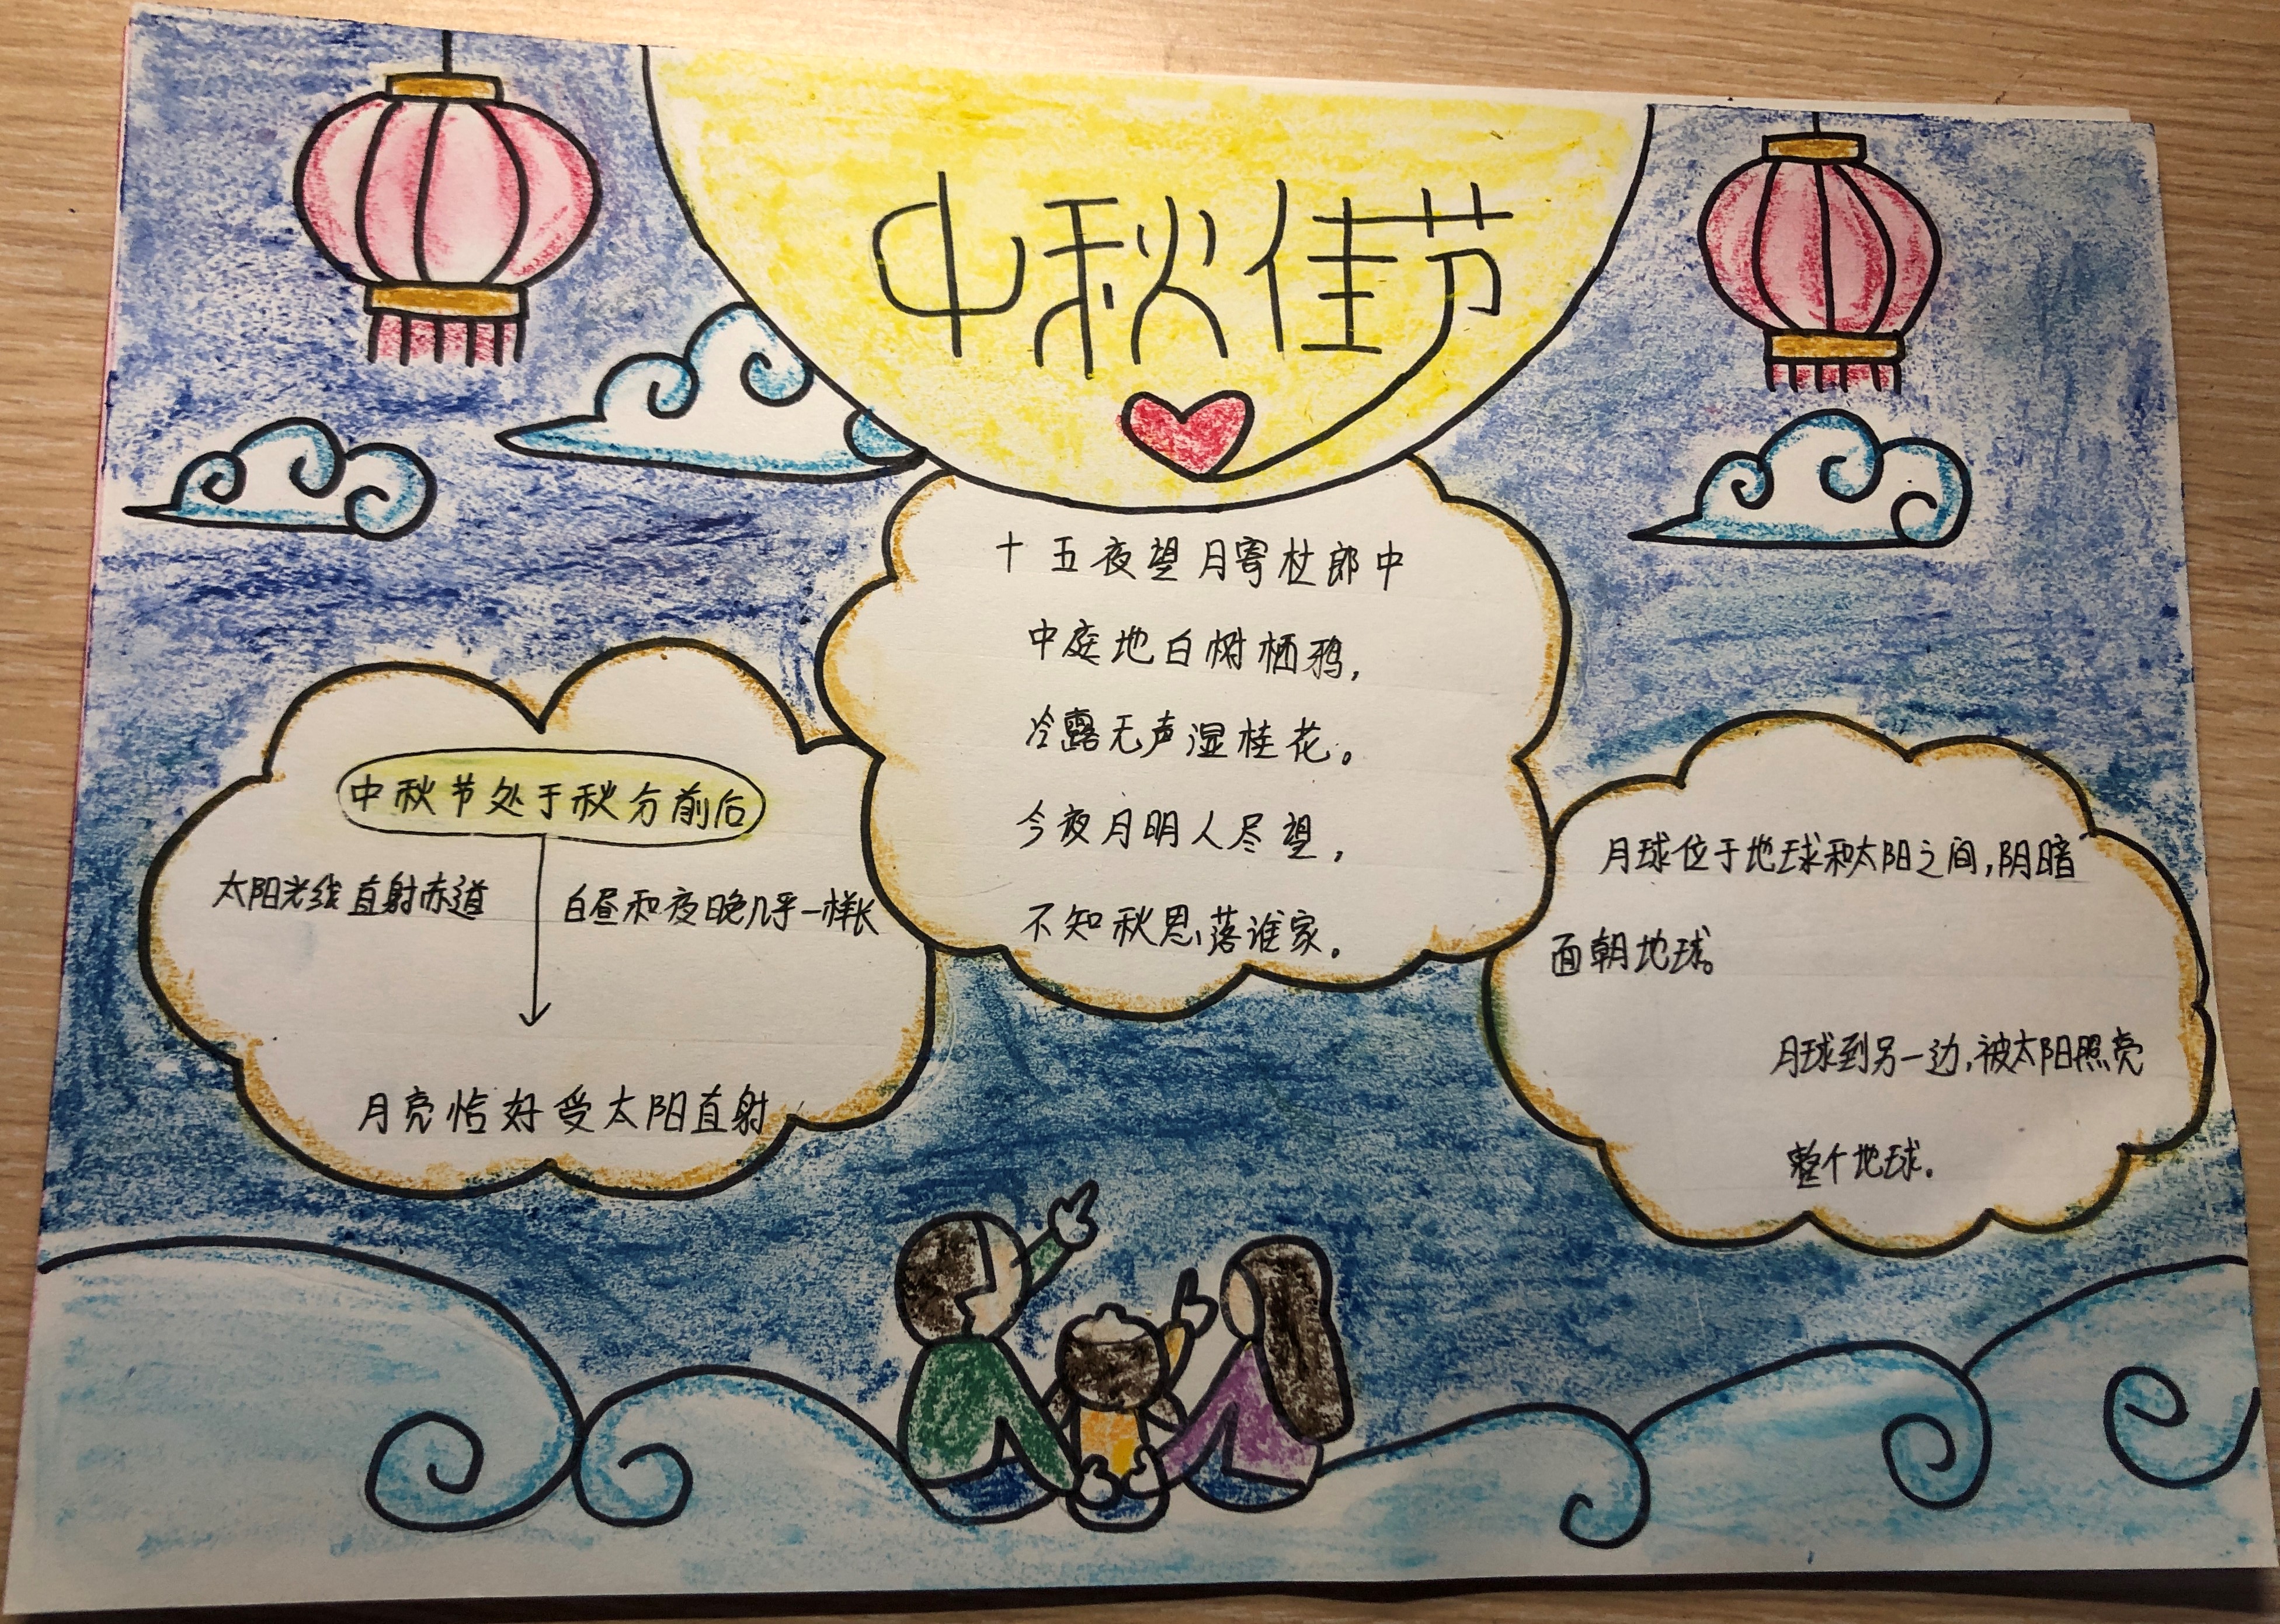 中秋佳节
十五夜望月寄杜郎中
中庭地白树栖鸦，
冷露无声湿桂花。
今夜月明人尽望，
不知秋思落谁家。
中秋节处于秋分前后
太阳光线直射赤道
白昼和夜晚几乎一样长
月亮恰好受太阳直射
月球位于地球和太阳之间，阴暗
面朝地球。
月球到另一边，被太阳照亮
整个地球.